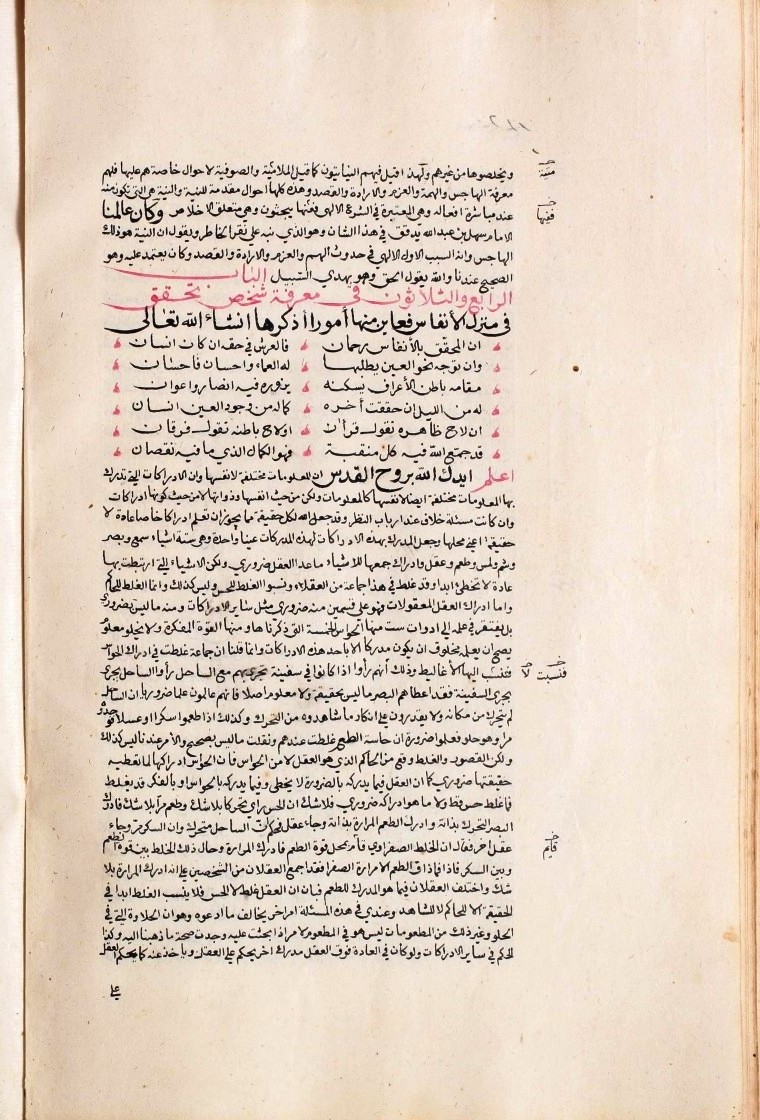 ويخلصوها من غيرهم ولهذا قيل فيهم النياتيون كما قيل الملامتية والصوفية لاحوال خاصة هم عليها فلهم
معرفة الهاجس والهمة والعزم والارادة والقصد وهذه كلها احوال مقدمة للنية والنية هي التي تكون منه
عند مباشرة افعاله وهي المعتبرة في الشرع الالهي ففيها يبحثون وهي متعلق الاخلاص وكان عالمنا
الامام سهل بن عبد الله يدقق في هذا الشان وهو الذي نبه على نقر الخاطر ويقول ان النية هو ذلك
الهاجس وانه السبب الاول الالهي في حدوث الهم والعزم والارادة والقصد وكان يعتمد عليه وهو
الصحيح عندنا والله يقول الحق وهو يهدي السبيل الباب
الرابع والثلاثون في معرفة شخص تحقق
في منزل الأنفاس فعاين منها أمورا أذكرها انشاء الله تعالى
ان المحقق بالأنفاس رحمان فالعرش في حقه ان كان انسان
وان توجه نحو العين يطلبها له العماء واحسان فاحسان
مقامه باطن الأعراف يسكنه يزوره فيه انصار واعوان
له من الليل ان حققت أخره كما له من وجود العين انسان
ان لاح ظاهره نقول قرأن او لاح باطنه نقول فرقان
قد جمع الله فيه كل منقبة فهو الكمال الذي ما فيه نقصان
اعلم ايدك الله بروح القدس ان المعلومات مختلفة لانفسها وان الادراكات التي تدرك
بها المعلومات مختلفة ايضا لانفسها كالمعلومات ولكن من حيث انفسها وذواتها لا من حيث كونها ادراكات
وان كانت مسئلة خلاف عند ارباب النظر وقد جعل الله لكل حقيقة مما يجوز ان تعلم ادراكا خاصا عادة لا
حقيقة اعني محلها وجعل المدرك بهذه الادراكات لهذه المدركات عينا واحدة وهي ستة اشياء سمع وبصر
وشم ولمس وطعم وعقل وادراك جميعها للاشياء ما عدا العقل ضروري ولكن الاشياء التي ارتبطت بها
عادة لا تخطئ ابدا وقد غلط في هذا جماعة من العقلاء ونسبوا الغلط للحس وليس كذلك وانما الغلط للحاكم
واما ادراك العقل المعقولات فهو على قسمين منه ضروري مثل سائر الادراكات ومنه ما ليس بضروري
بل يفتقر في علمه الى ادوات ست منها الحواس الخمسة التي ذكرناها ومنها القوة المفكرة ولا يخلو معلوم
يصح ان يعلمه مخلوق ان يكون مدركا لاباحد هذه الادراكات وانما قلنا ان جماعة غلطت في ادراك الحواس
فنسب اليها الأغاليط وذلك أنهم رأوا اذا كانوا في سفينة تجري بهم مع الساحل رأوا الساحل يجري
بجري السفينة فقد اعطاهم البصر ما ليس بحقيقة ولا معلوم اصلا فانهم عالمون علما ضروريا ان الساحل
لم يتحرك من مكانه ولا يقدرون على انكار ما شاهدوه من التحرك وكذلك اذا طعموا سكرا او عسلا فوجدوه
مرا وهو حلو فعلموا ضرورة ان حاسة الطعم غلطت عندهم ونقلت ما ليس بصحيح والأمر عندنا ليس كذلك
ولكن القصور والغلط وقع من الحاكم الذي هو العقل لا من الحواس فان الحواس ادراكها لما تعطيه
حقيقتها ضروري كما ان العقل فيما يدركه بالضرورة لا يخطي وفيما يدركه بالحواس او بالفكر قد يغلط
فما غلط حس قط ولا ما هو ادراكه ضروري فلا شك ان الحس راي تحركا بلا شك وطعم مرا بلا شك فادرك
البصر التحرك بذاته وادرك الطعم المرارة بذاته وجاء عقل فحكم ان الساحل متحرك وان السكر مر وجاء
عقل اخر فقال ان الخلط الصفراوي قام بمحل قوة الطعم فادرك المرارة وحال ذلك الخلط بين قوة الطعم
وبين السكر فاذا فما ذاق الطعم الا مرارة الصفرا فقد اجمع العقلان من الشخصين على انه ادرك المرارة بلا
شك واختلف العقلان فيما هو المدرك للطعم فبان ان العقل غلط لا الحس فلا ينسب الغلط ابدا في
الحقيقة الا للحاكم لا للشاهد وعندي في هذه المسئلة امر اخر يخالف ما ادعوه وهو ان الحلاوة التي في
الحلو وغير ذلك من المطعومات ليس هو في المطعوم لامر اذا بحثت عليه وجدت صحة ما ذهبنا اليه وكذا
الحكم في سائر الادراكات ولو كان في العادة فوق العقل مدرك اخر يحكم على العقل وياخذ عنه كما يحكم العقل
على
فيها
فنسبت لا
قايم